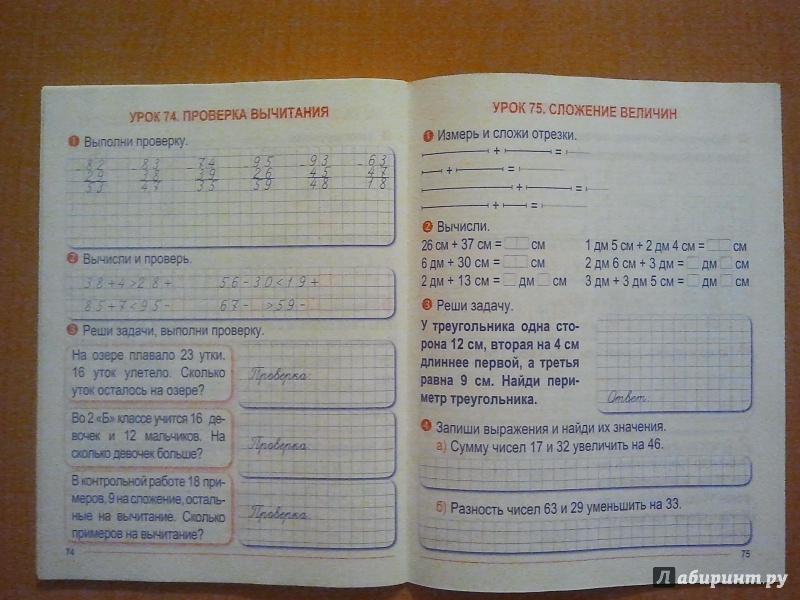 УРОК 74. ПРОВЕРКА ВЫЧИТАНИЯ
1 Выполни проверку.
- 82 - 83 - 74 - 95 - 93 - 63
29 38 39 26 45 47
53 47 35 59 48 18
2 Вычисли и проверь.
38+4>28+ 56-30<19+
85+7<95- 67- >59-
3 Реши задачи, выполни проверку.
На озере плавало 23 утки.
16 уток улетело. Сколько
уток осталось на озере?
Проверка:
Во 2 «Б» классе учится 16 де-
вочек и 12 мальчиков. На
сколько девочек больше?
Проверка:
В контрольной работе 18 при-
меров, 9 на сложение, осталь-
ные на вычитание. Сколько
примеров на вычитание?
Проверка:
74
УРОК 75. СЛОЖЕНИЕ ВЕЛИЧИН
1 Измерь и сложи отрезки.
+ =
+ =
+ =
+ =
2 Вычисли.
26 см + 37 см = см 1 дм 5 см + 2 дм 4 см = см
6 дм + 30 см = см 2 дм 6 см + 3 дм = дм см
2 дм + 13 см = дм см 3 дм + 3 дм 5 см = дм см
3 Реши задачу.
У треугольника одна сто-
рона 12 см, вторая на 4 см
длиннее первой, а третья
равна 9 см. Найди пери-
метр треугольника.
Ответ:
4 Запиши выражения и найди их значения.
а) Сумму чисел 17 и 32 увеличить на 46.
б) Разность чисел 63 и 29 уменьшить на 33.
75
Лабиринт.ру